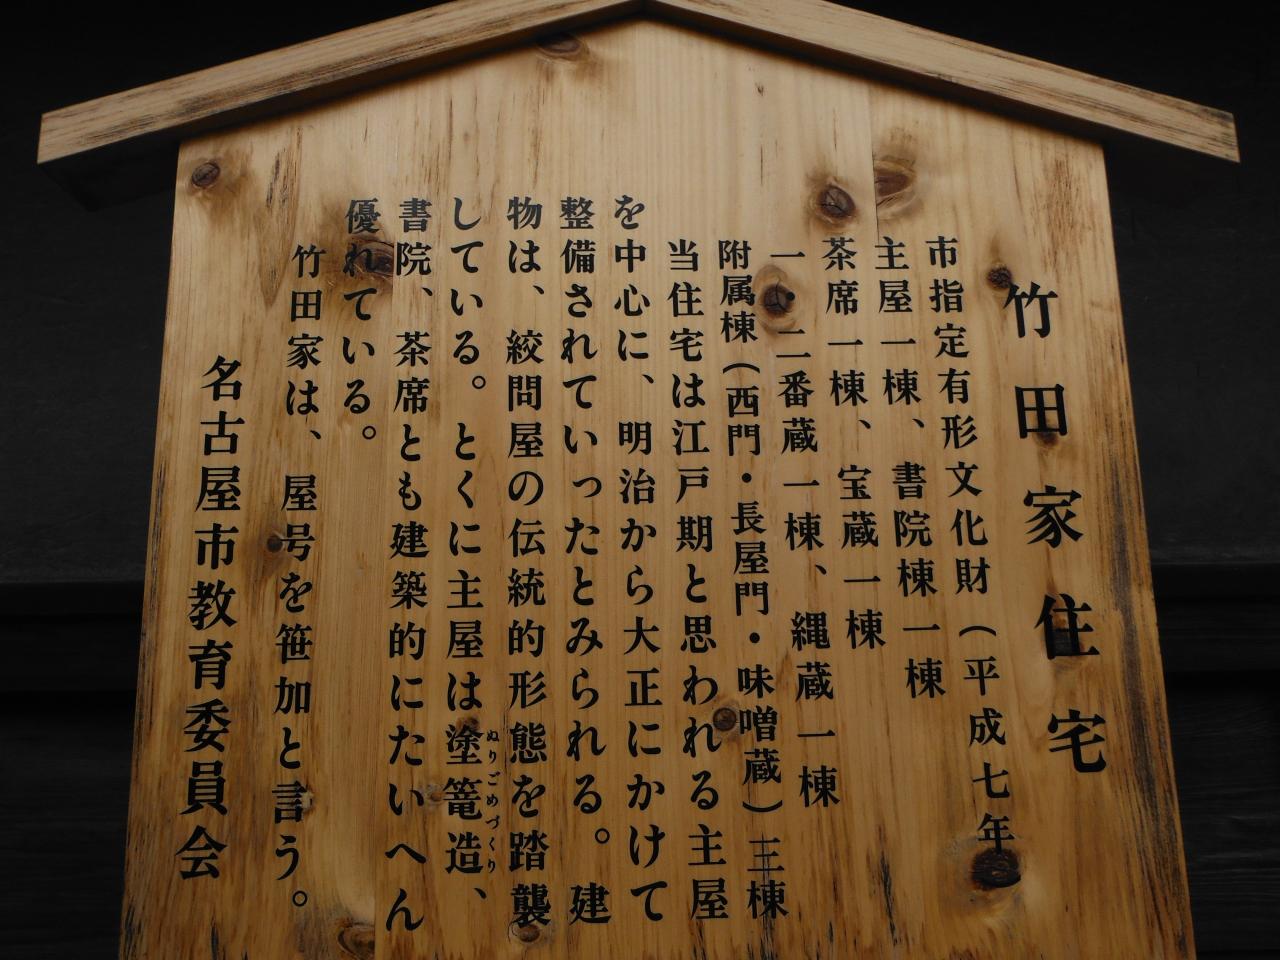 竹田家住宅
市指定有形文化財（平成七年）
主屋一棟、書院棟一棟
茶席一棟、宝蔵一棟
一・二番蔵一棟、縄蔵一棟
附属棟（西門・長屋門・味噌蔵）三棟
当住宅は江戸期と思われる主屋
を中心に、明治から大正にかけて
整備されていったとみられる。建
物は、絞問屋の伝統的形態を踏襲
している。とくに主屋は塗篭造、
ぬりごめづくり
書院、茶席とも建築的にたいへん
優れている。
竹田家は、屋号を笹加と言う。
名古屋市教育委員会